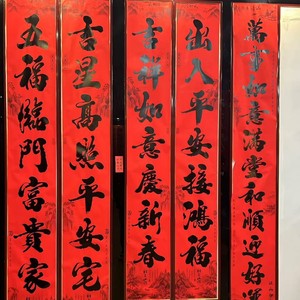 萬事如意滿堂和順迎好
出入平安接鴻福
吉祥如意慶新春
吉星高照平安宅
五福臨門富貴家